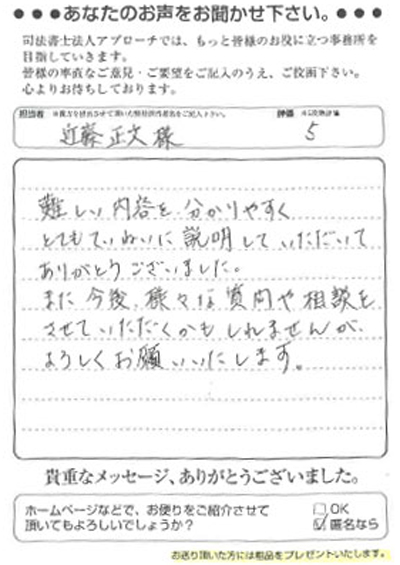 ●●●あなたのお声をお聞かせ下さい。●●●
司法書士法人アプローチでは、もっと皆様のお役に立つ事務所を
目指していきます。
皆様の率直なご意見・ご要望をご記入のうえ、ご投函下さい。
心よりお待ちしております。
担当者 ※貴方を担当させて頂いた弊社担当者名をご記入下さい。 評価 ※5段階評価
近藤 正文 様 5
難しい内容を分かりやすく
とてもていねいに説明していただいて
ありがとうございました。
また今後、様々な質問や相談を
させていただくかもしれませんが、
よろしくお願いいたします。
貴重なメッセージ、ありがとうございました。
ホームページなどで、お便りをご紹介させて
頂いてもよろしいでしょうか?
□OK
☑匿名なら
お送り頂いた方には粗品をプレゼントいたします。